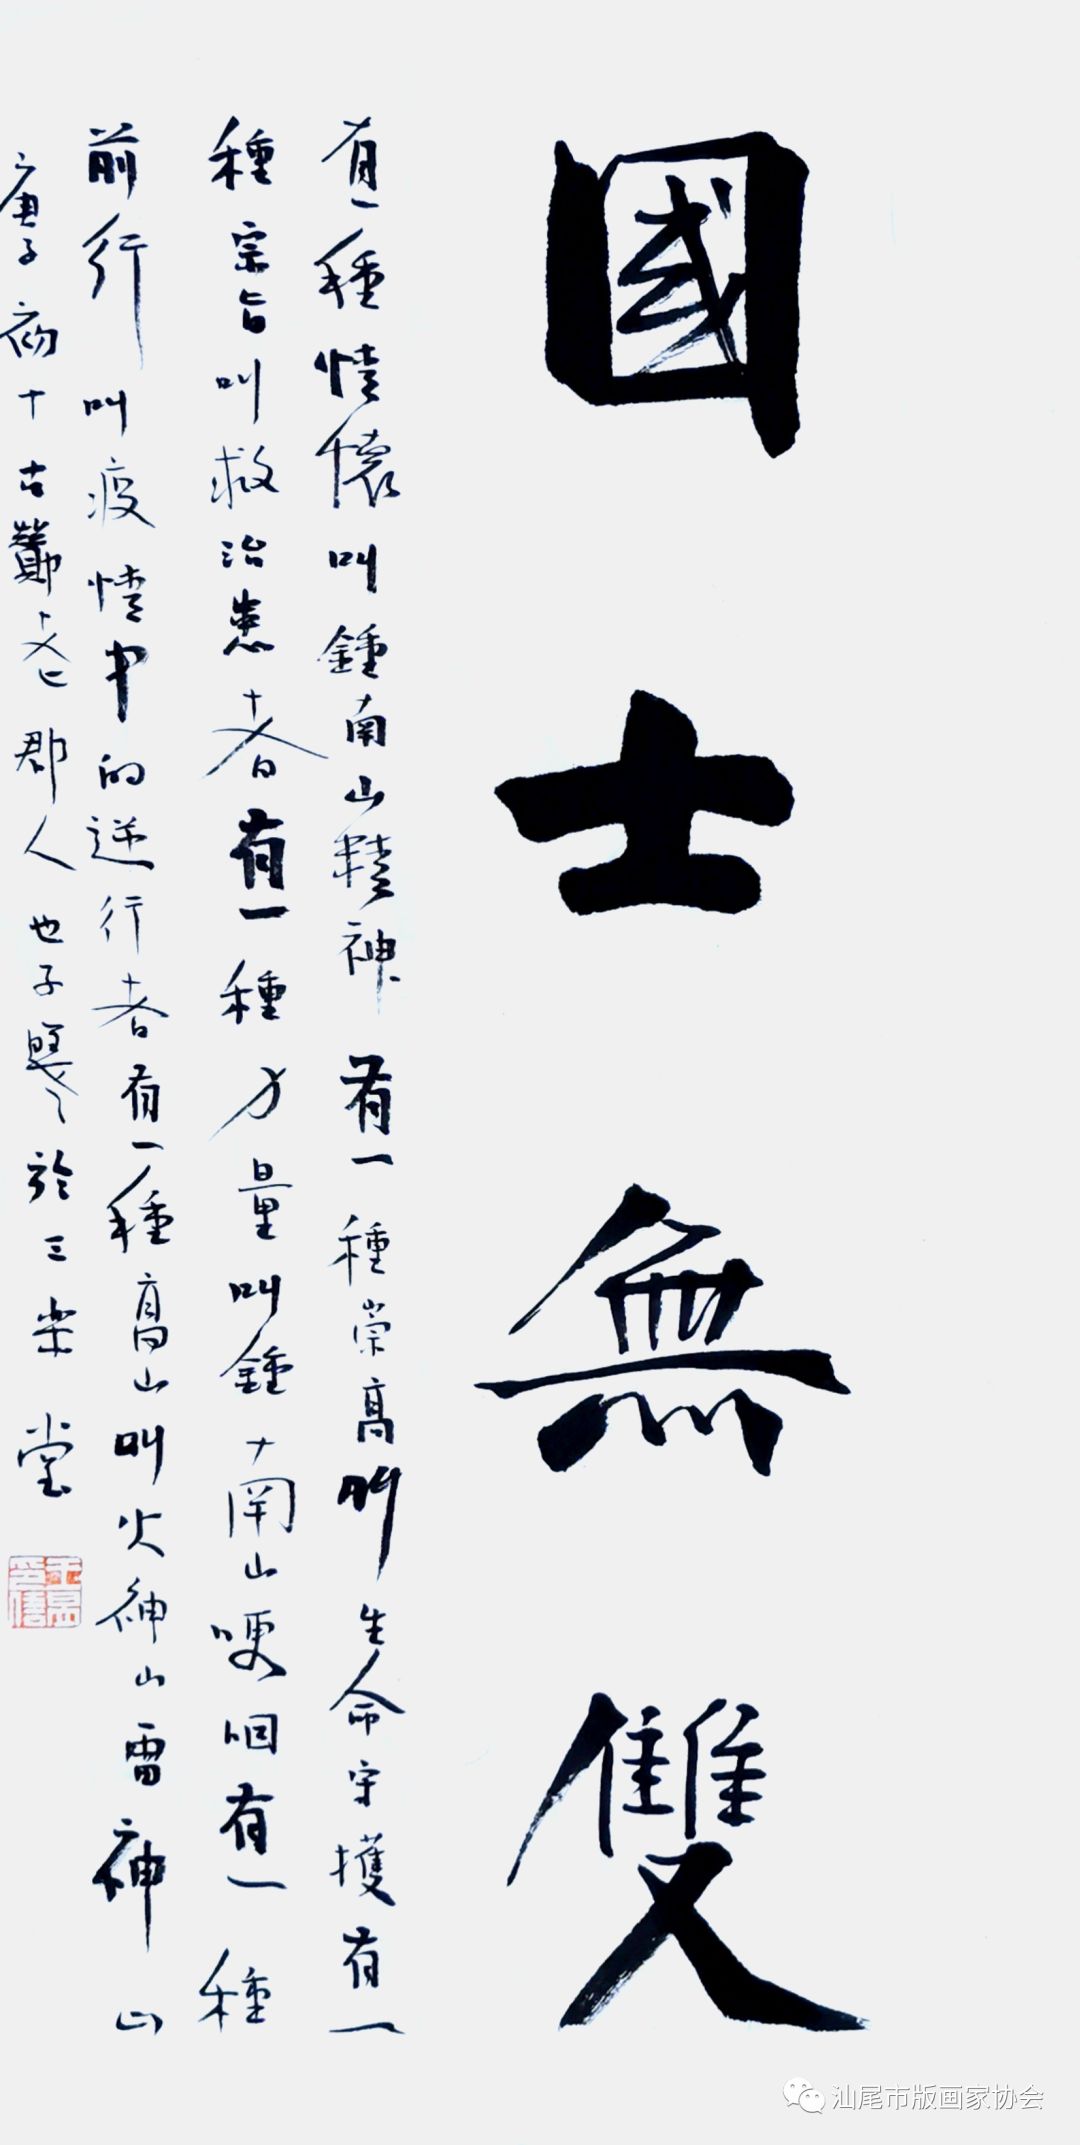 國士無雙
有一種情懷叫鍾南山精神有一種崇高叫生命守擭有一
種宗旨叫救治患者有一種力量叫鍾南山哽咽有一種
前行叫疫情中的逆行者有一種高山叫火神山雷神山
庚子初十古酇老郡人也子於三樂堂
汕尾市版画家协会